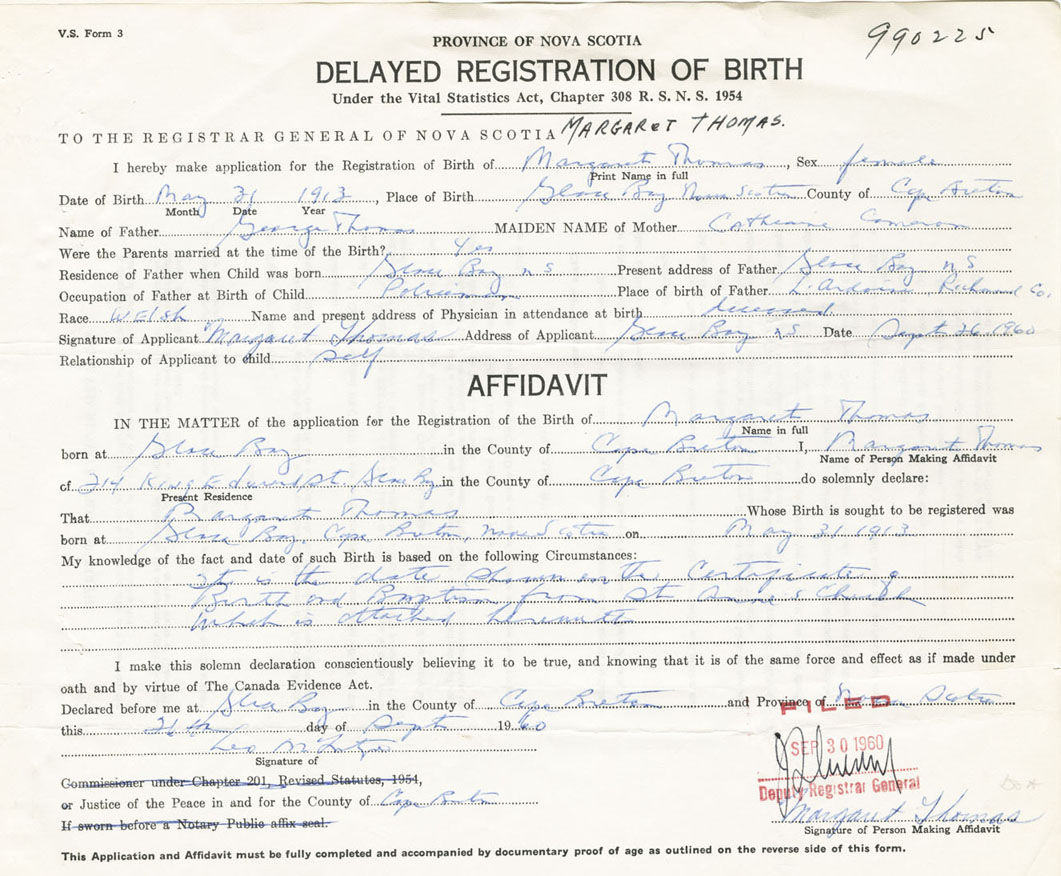 V.S. Form 3
990225
PROVINCE OF NOVA SCOTIA
DELAYED REGISTRATION OF BIRTH
Under the Vital Statistics Act, Chapter 308 R. S. N. S. 1954
TO THE REGISTRAR GENERAL OF NOVA SCOTIA MARGARET THOMAS.
I hereby make application for the Registration of Birth of Margaret Thomas, Sex female
Print Name in full
Date of Birth May 31 1913, Place of Birth Glace Bay Nova Scotia County of Cape Breton
Month Date Year
Name of Father George Thomas MAIDEN NAME of Mother Catherine Cameron
Were the Parents married at the time of the Birth? Yes
Residence of Father when Child was born Glace Bay N S Present address of Father Glace Bay N S
Occupation of Father at Birth of Child Policeman Place of birth of Father L'Ardoise, Richmond Co.
Race Welsh Name and present address of Physician in attendance at birth deceased
Signature of Applicant Margaret Thomas Address of Applicant Glace Bay N S Date Sept 26 1960
Relationship of Applicant to child Self
AFFIDAVIT
IN THE MATTER of the application for the Registration of the Birth of Margaret Thomas
Name in full
born at Glace Bay in the County of Cape Breton I, Margaret Thomas
Name of Person Making Affidavit
of 214 King Edward St. Glace Bay in the County of Cape Breton do solemnly declare:
Present Residence
That Margaret Thomas Whose Birth is sought to be registered was
born at Glace Bay, Cape Breton, Nova Scotia on May 31 1913
My knowledge of the fact and date of such Birth is based on the following Circumstances:
It is the date shown on the Certificate of
Birth and Baptism from St Anne's Church
which is attached herewith
I make this solemn declaration conscientiously believing it to be true, and knowing that it is of the same force and effect as if made under
oath and by virtue of The Canada Evidence Act.
Declared before me at Glace Bay in the County of Cape Breton and Province of Nova Scotia
FILED
this day of Sept 1960
SEP 30 1960
Leo
Signature of
Commissioner under Chapter 201, Revised Statutes, 1954,
Deputy Registrar General
or Justice of the Peace in and for the County of Cape Breton
Margaret Thomas
If sworn before a Notary Public affix seal.
Signature of Person Making Affidavit
This Application and Affidavit must be fully completed and accompanied by documentary proof of age as outlined on the reverse side of this form.